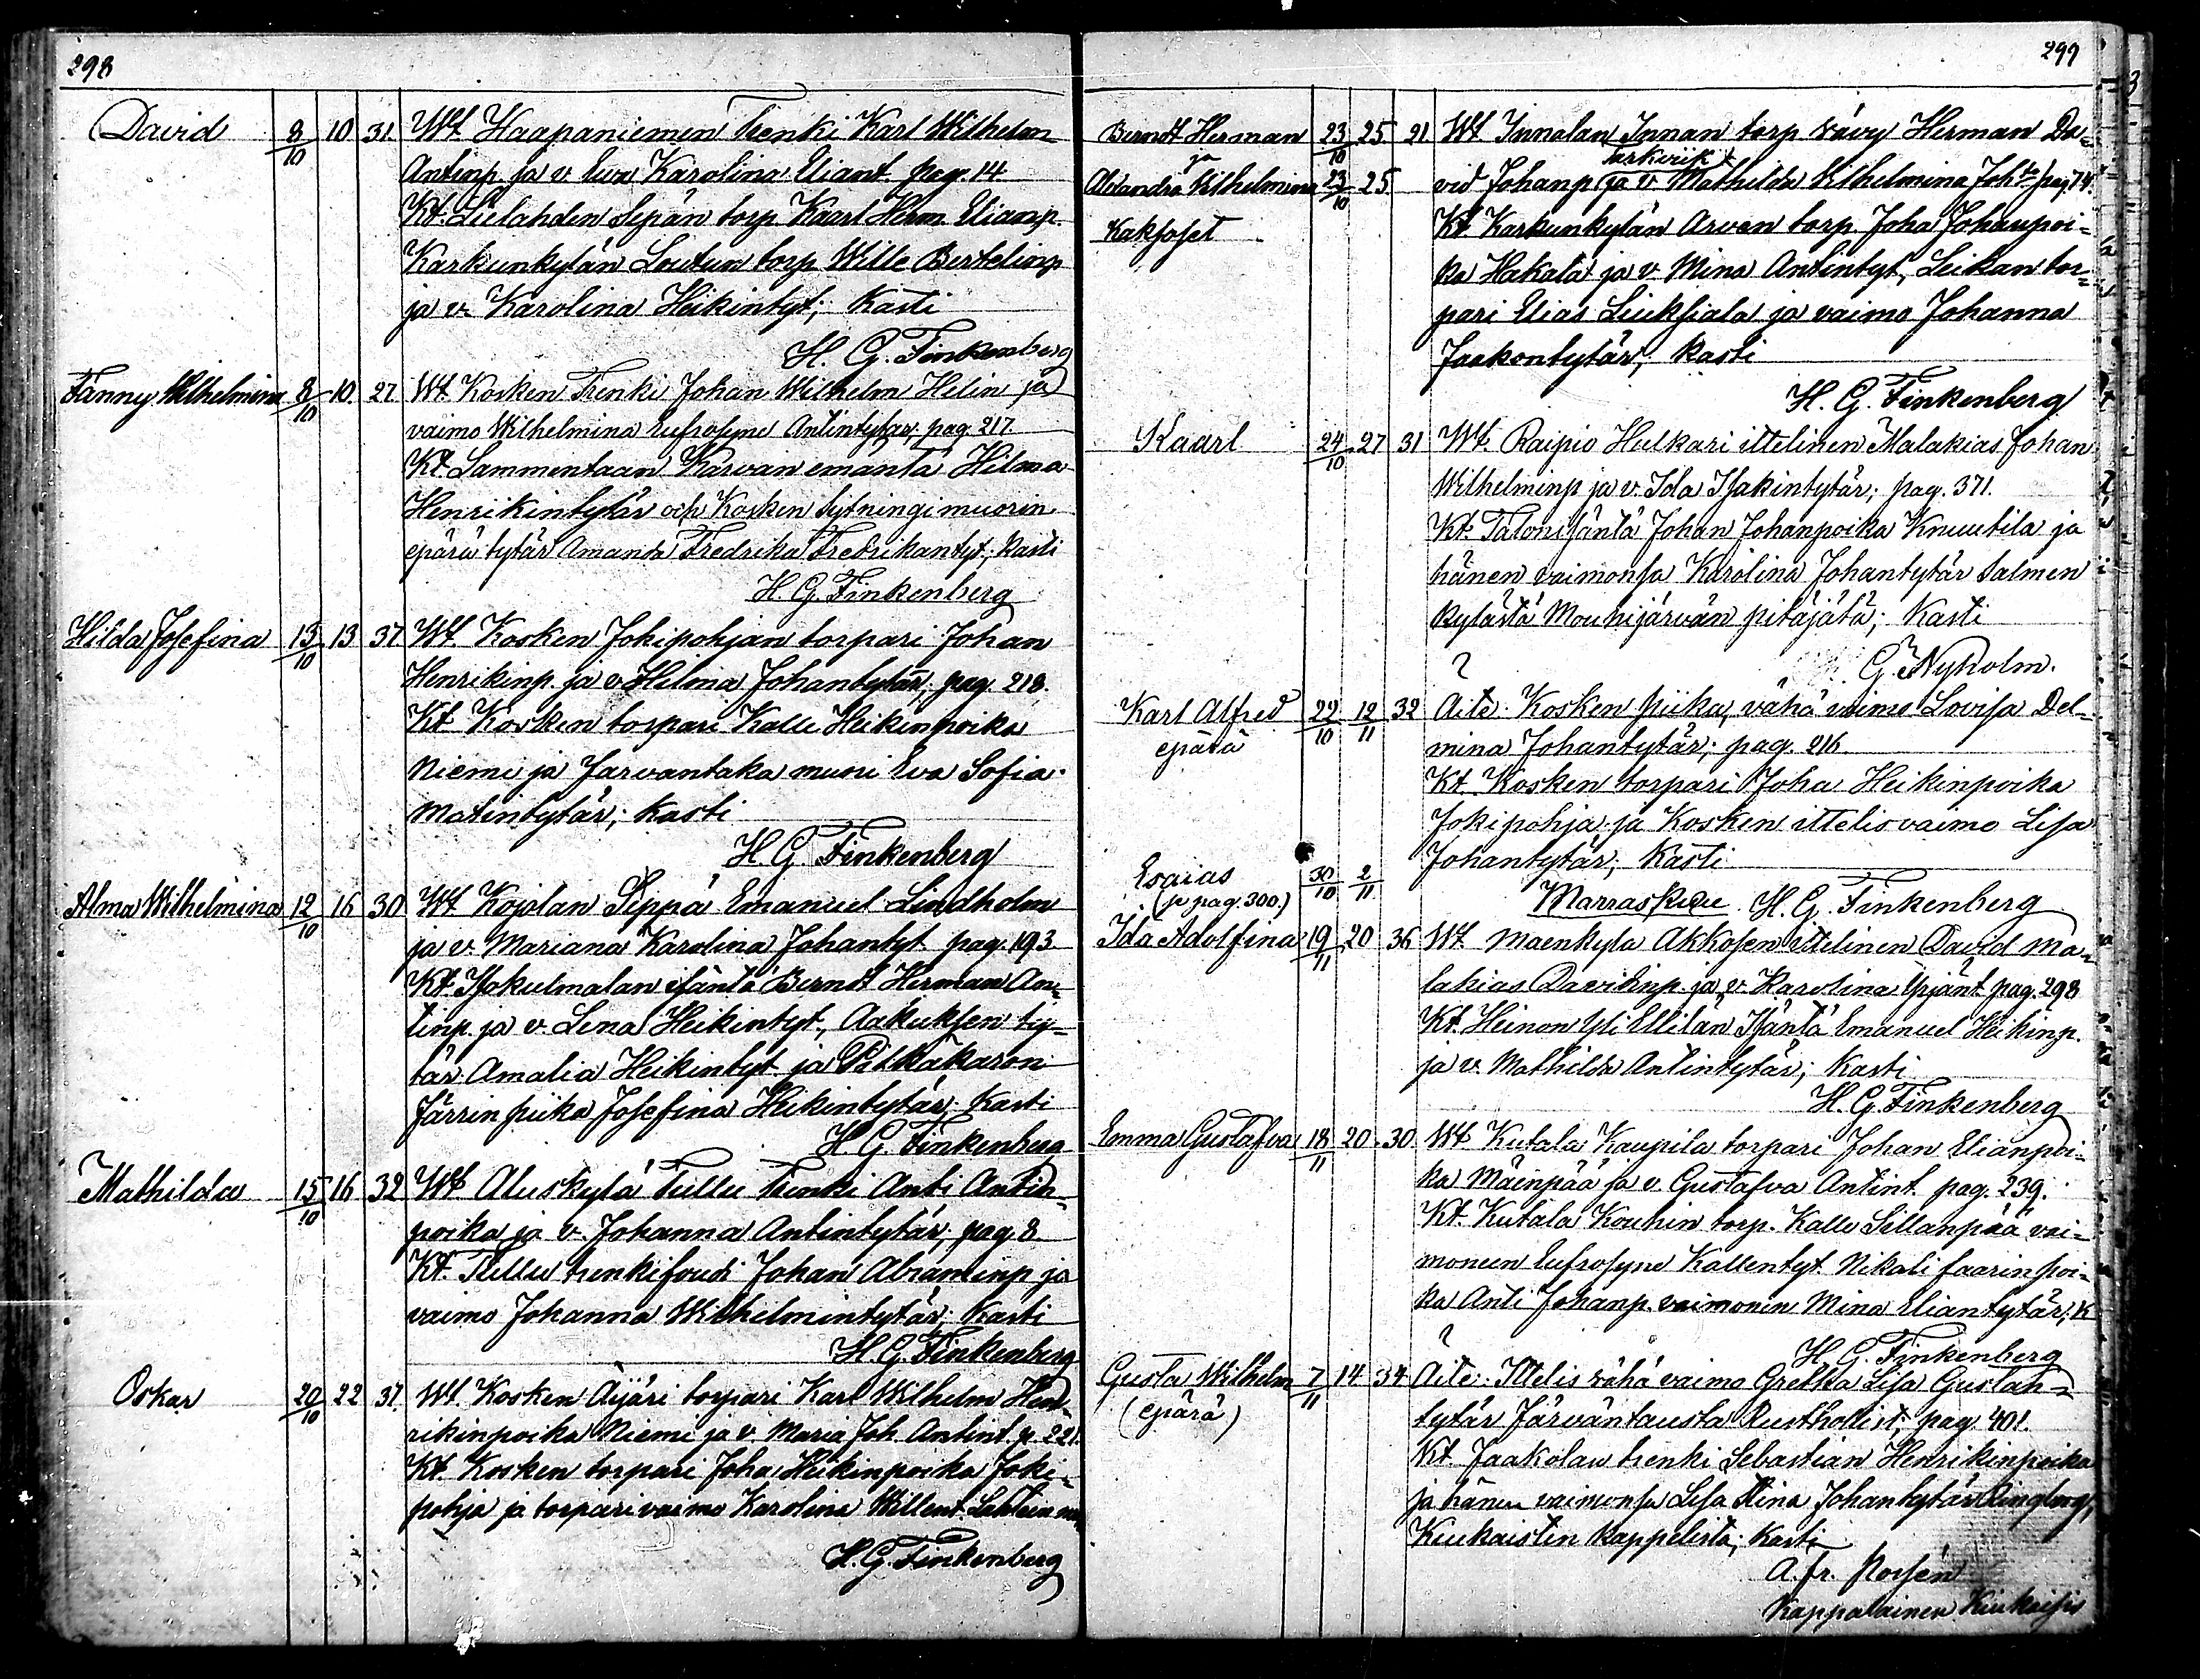 298
David 8/10 10 31 Wt. Haapaniemen Trenki Karl Wilhelm
Antinp. ja v. Eva Karolina Eliant. pag. 14
Kt. Lielahden Sepän torp. Kaarl Herm. Elianp.
Karkunkylän Loutun torp. Wille Bertelinp.
ja v. Karolina Heikintyt; Kasti
H. G. Finkenberg
Fanny Wilhelmina 8/10 10. 27 Wt. Kosken Trenki Johan Wilhelm Helin ja
vaimo Wilhelmina Eufrosyne Antintytär pag. 217.
Kt. Sammentaan Karvan emäntä Hilma
Henrikintytär och Kosken sytningimuorin
epärä tytär Amanda Fredrika Fredrikantyt; Kasti
H. G. Finkenberg
Hilda Josefina 13/10 13 37 Wt. Kosken Jokipohjan torpari Johan
Henrikinp. ja v. Helma Johantytär; pag. 218.
Kt. Kosken torpari Kalle Heikinpoika
Niemi ja Jarvantaka muori Eva Sofia
Matintytär; Kasti
H. G. Finkenberg
Alma Wilhelmina 12/10 16 30 Wt. Kojolan Seppä Emanuel Lindholm
ja v. Mariana Karolina Johantyt. pag. 193
Kt. Isokulmalan isäntä Berndt Herman An-
tinp. ja v. Lena Heikintyt., Aakuksen ty-
tär Amalia Heikintyt. ja Pitkäkaron
Järrin piika Josefina Heikintytär; Kasti
H. G. Finkenberg
Mathilda 15/10 16 32 Wt. Aluskylä Tullu Trenki Anti Antin-
poika ja v. Johanna Antintytär; pag. 8
Kt. Tullu trenkifoudi Johan Abraminp. ja
vaimo Johanna Wilhelmintytär; Kasti
H. G. Finkenberg
Oskar 20/10 22 37. Wt. Kosken Äijäri torpari Karl Wilhelm Hen-
rikinpoika Niemi ja v. Maria Joh. Antint. p. 221.
Kt. Kosken torpari Joha Heikinpoika Joki-
pohja ja torparivaimo Karolina Willent.
H. G. Finkenberg
299
Berndt Herman 23/10 25 21 Wt. Innalan Innan torp. vävy Herman Da-
ja
Alexandra Wilhelmina 23/10 25 vid Johanp. ja v. Mathilda Wilhelmina Joht. pag. 74.
Kaksoset Kt. Karkunkylän Arven torp. Joha Johanpoi-
ka Hakala ja v. Mina Antintyt, Leikan tor-
pari Elias Liuksiala ja vaimo Johanna
Jaakontytär; Kasti
H. G. Finkenberg
Kaarl 24/10 27 31 Wt. Raipio Hulkari ittelinen Malakias Johan
Wilhelminp. ja v. Ida Isakintytär; pag. 371.
Kt. Talonisäntä Johan Johanpoika Knuutila ja
hänen vaimonsa Karolina Johantytär Salmen
kylästä Mouhijärvän pitäjätä; Kasti
G. Nyholm.
?
Karl Alfred 22/10 12/11 32 Äite. Kosken piika, vähä vaimo Lovisa Del-
epärä mina Johantytär; pag. 216
Kt. Kosken torpari Joha Heikinpoika
Jokipohja ja Kosken ittelisvaimo Lisa
Johantytär; Kasti
Esaias 30/10 2/11
(p pag. 300.) Marraskuu H. G. Finkenberg
Ida Adolfina 19/11 20 36 Wt. Maenkyla Akkosen ittelinen David Ma-
lakias Davidinp. ja v. Karolina Yrjänt. pag. 298
Kt. Heinon Yli Ellilän Isäntä Emanuel Heikinp.
ja v. Mathilda Antintytär; Kasti
H. G. Finkenberg
Emma Gustafva 18/11 20 30. Wt. Kutala Kaupila torpari Johan Elianpoi-
ka Mäinpää ja v. Gustafva Antint. pag. 239.
Kt. Kutala Kouhin torp. Kalle Sillanpää vai-
moneen Eufrosyne Kallentyt. Nikali faarinpoi-
ka Anti Johanp. vaimonen Mina Eliantytär; K
H. G. Finkenberg
?
Gusta Wilhelm 7/11 14 34 Äite: Ittelis vähä vaimo Gretka Lisa Gustan-
(epärä) tytär Järväntausta Rusthollist; pag. 401.
Kt. Jaakolan trenki Sebastian Henrikinpoika
ja hänen vaimonsa Lisa Stina Johantytär Ringberg,
Kiukaistin kappelista; Kasti
A. Fr. Norsén
Kappalainen Kiukaisis